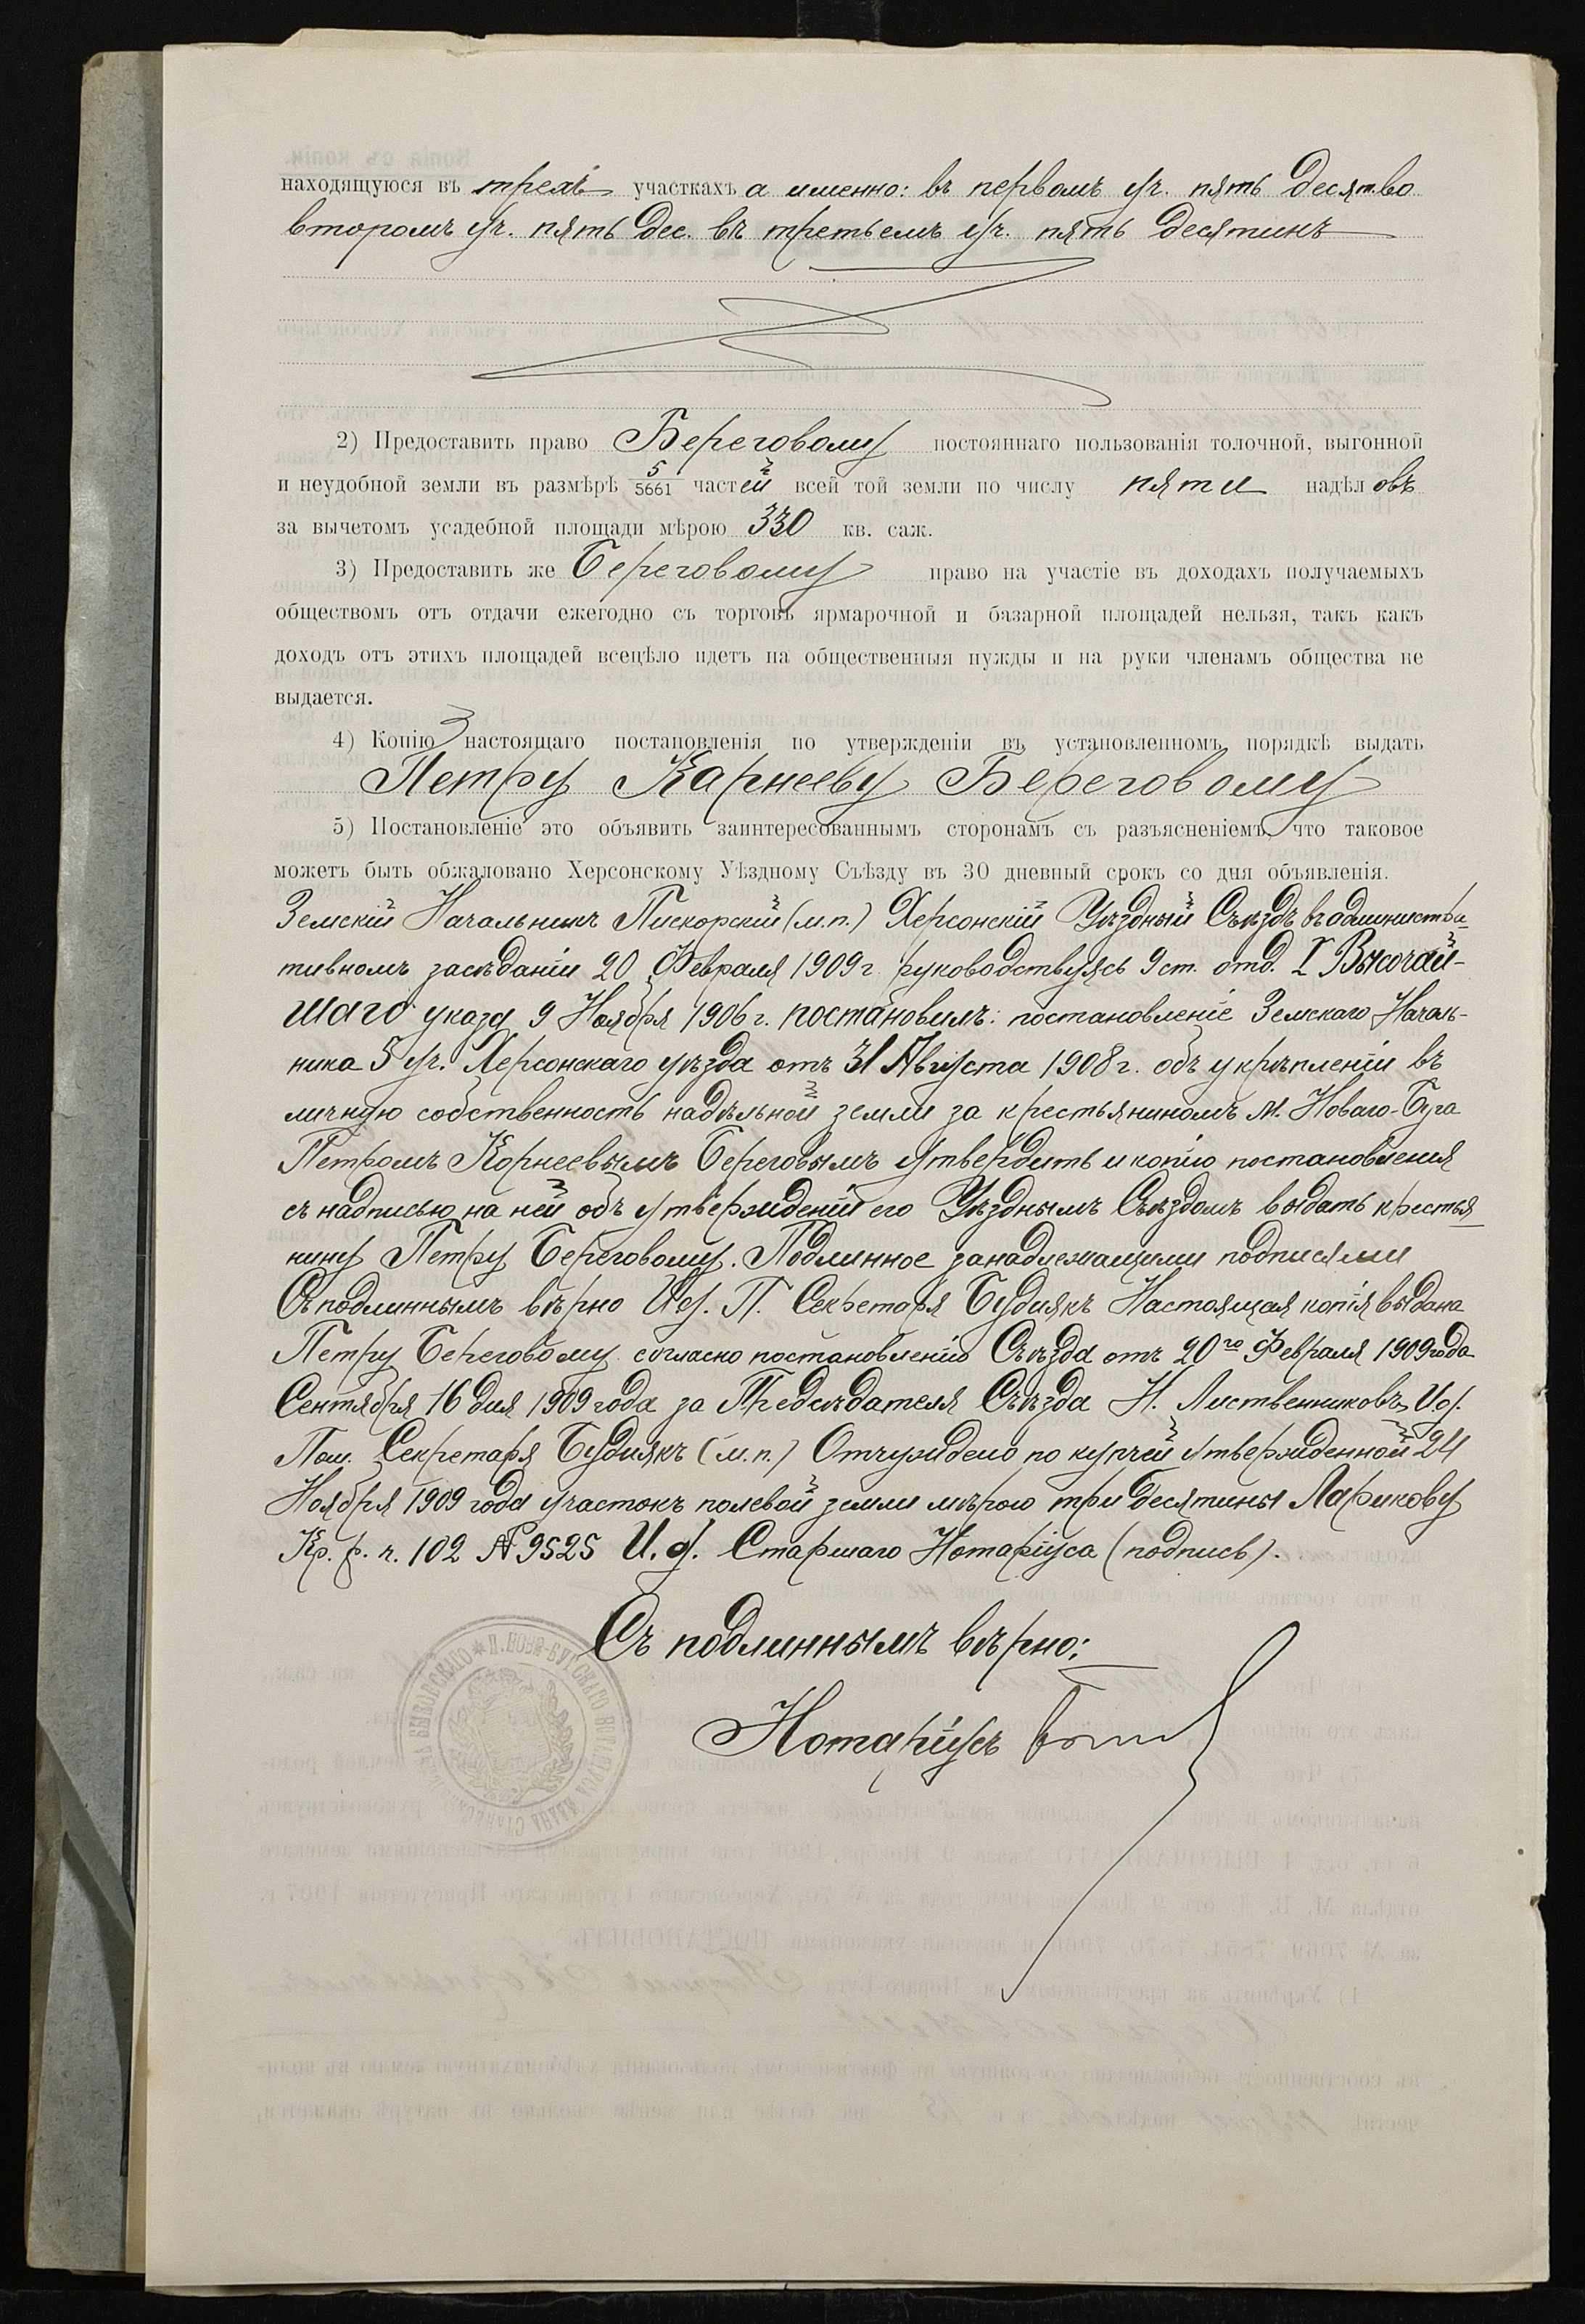 находящуюся въ трехъ участкахъ а именно: въ первомъ уч. пять десят. во
второмъ уч. пять дес. въ третьемъ уч. пять десятинъ
2) Предоставить право Береговому постояннаго пользованія толочной, выгонной
и неудобной земли въ размѣрѣ 5/5661 частей всей той земли по числу пяти надѣловъ
за вычетомъ усадебной площади мѣрою 330 кв. саж.
3) Предоставить же Береговому право на участіе въ доходахъ получаемыхъ
обществомъ отъ отдачи ежегодно съ торговъ ярмарочной и базарной площадей нельзя, такъ какъ
доходъ отъ этихъ площадей всецѣло идетъ на общественныя нужды и на руки членамъ общества не
выдается.
4) Копію настоящаго постановленія по утвержденіи въ установленномъ порядкѣ выдать
Петру Карнееву Береговому
5) Постановленіе это объявить заинтересованнымъ сторонамъ съ разъясненіемъ, что таковое
можетъ быть обжаловано Херсонскому Уѣздному Съѣзду въ 30 дневный срокъ со дня объявленія.
Земскій Начальникъ Пискорскій (м.п.) Херсонскій Уѣздный Съѣздъ въ администра-
тивномъ засѣданіи 20 Февраля 1909 г. руководствуясь 9 ст. отд. I Высочай-
шаго указа 9 Ноября 1906 г. постановилъ: постановленіе Земскаго Началь-
ника 5 уч. Херсонскаго уѣзда отъ 31 Августа 1908 г. объ укрѣпленіи въ
личную собственность надѣльной земли за крестьяниномъ м. Новаго-Буга
Петромъ Корнеевымъ Береговымъ утвердить и копію постановленія
съ надписью на ней объ утвержденіи его Уѣзднымъ Съѣздомъ выдать крестья
нину Петру Береговому. Подлинное за надлежащими подписями
Съ подлиннымъ вѣрно И об. П. Секретаря Будиякъ Настоящая копія выдана
Петру Береговому согласно постановленію Съѣзда отъ 20го Февраля 1909 года
Сентября 16 дня 1909 года за Предсѣдателя Съѣзда Н. Лиственниковъ, И об.
Пом. Секретаря Будиякъ (м.п.) Отчуждено по купчей утвержденной 24
Ноября 1909 года участокъ полевой земли мѣрою три десятины Ларикову
Кр. р. п. 102 № 9525 И. д. Старшаго Нотаріуса (подпись).
Съ подлиннымъ вѣрно:
Нотаріусъ